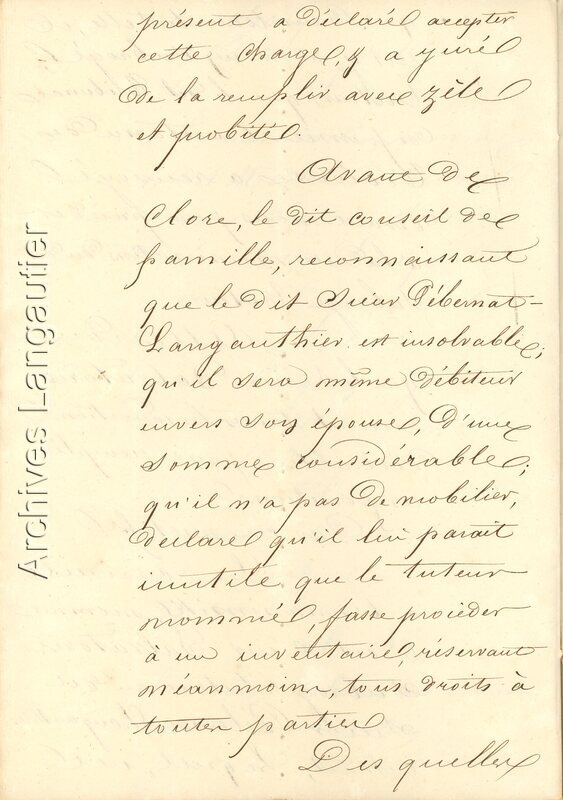 présent a déclaré accepter
cette charge, y a juré
de la remplir avec zèle
et probité.
Avant de
Clore, le dit conseil de
famille, reconnaissant
que le dit Sieur Pébernat-
Langauthier est insolvable;
qu'il sera même débiteur
envers son épouse, d'une
somme considérable;
qu'il n'a pas de mobilier,
déclare qu'il lui parait
inutile que le tuteur
nommé, fasse procéder
à un inventaire, réservant
néanmoins, tous droits à
toutes parties
Des quelles
Archives Langautier